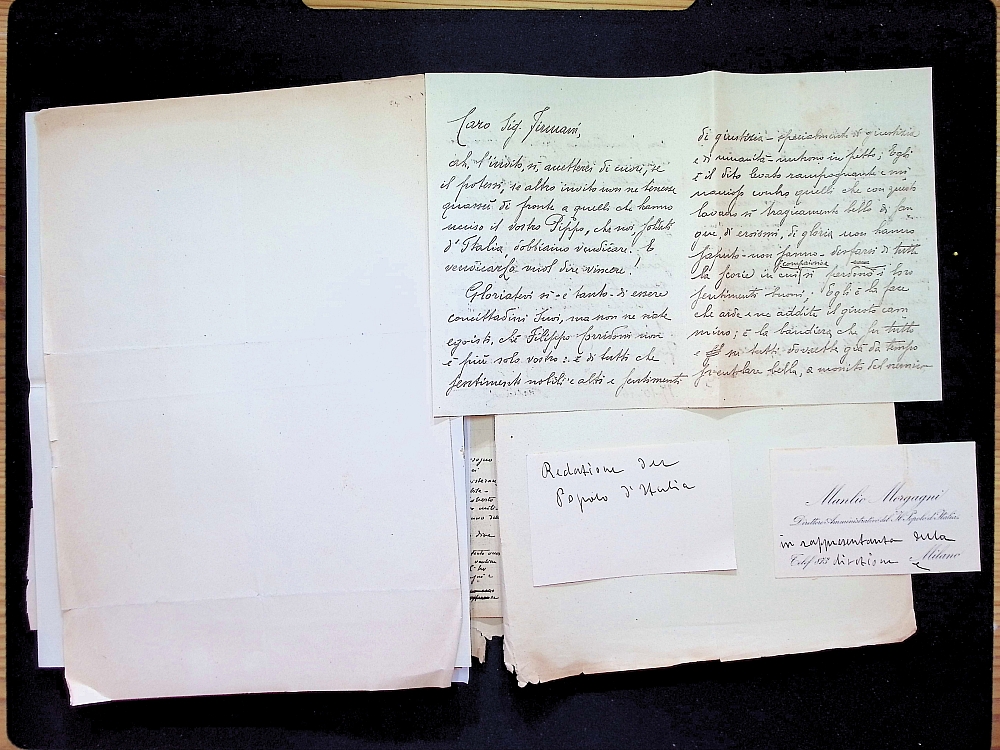 Caro Sig. Firmani,
oh, l'invito, sì, accetterei di cuore, se
il potessi, se altro invito non ne tenesse
quassù di fronte a quelli che hanno
ucciso il vostro Pippo, che noi, soldati
d'Italia dobbiamo vendicare. E
vendicarlo vuol dire vincere!
Gloriatevi sì - e tanto - di essere
concittadini Suoi, ma non ne siate
egoisti, ché Filippo Corridoni non
è più solo vostro: è di tutti che
sentimenti nobili e alti e sentimenti
di giustizia - specialmente di giustizia
e di umanità - nutrono in petto; Egli
è il dito levato rampognante e mi
naccioso contro quelli che con questo
lavacro sì tragicamente bello di san
gue, di eroismi, di gloria non hanno
saputo - non sanno - disfarsi di tutte
le scorie in cui si perdono i loro
compaiono
sentimenti buoni; Egli è la face
che arde e ne addita il giusto cam
mino; è la bandiera che su tutto
e su tutti dovrebbe già da tempo
sventolare bella, a monito del nemico
Redazione del
Popolo d'Italia
Manlio Morgagni
Direttore Amministrativo del Il Popolo d'Italia
in rappresentanza della
direzione
Telef.
Milano